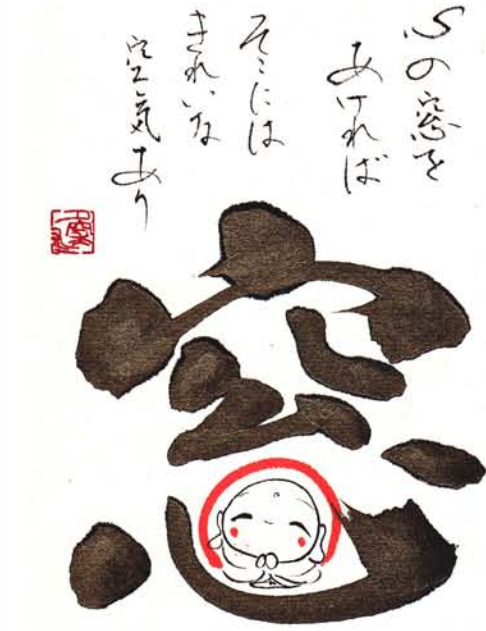 心の窓を
あければ
そこには
きれいな
空気あり
窓